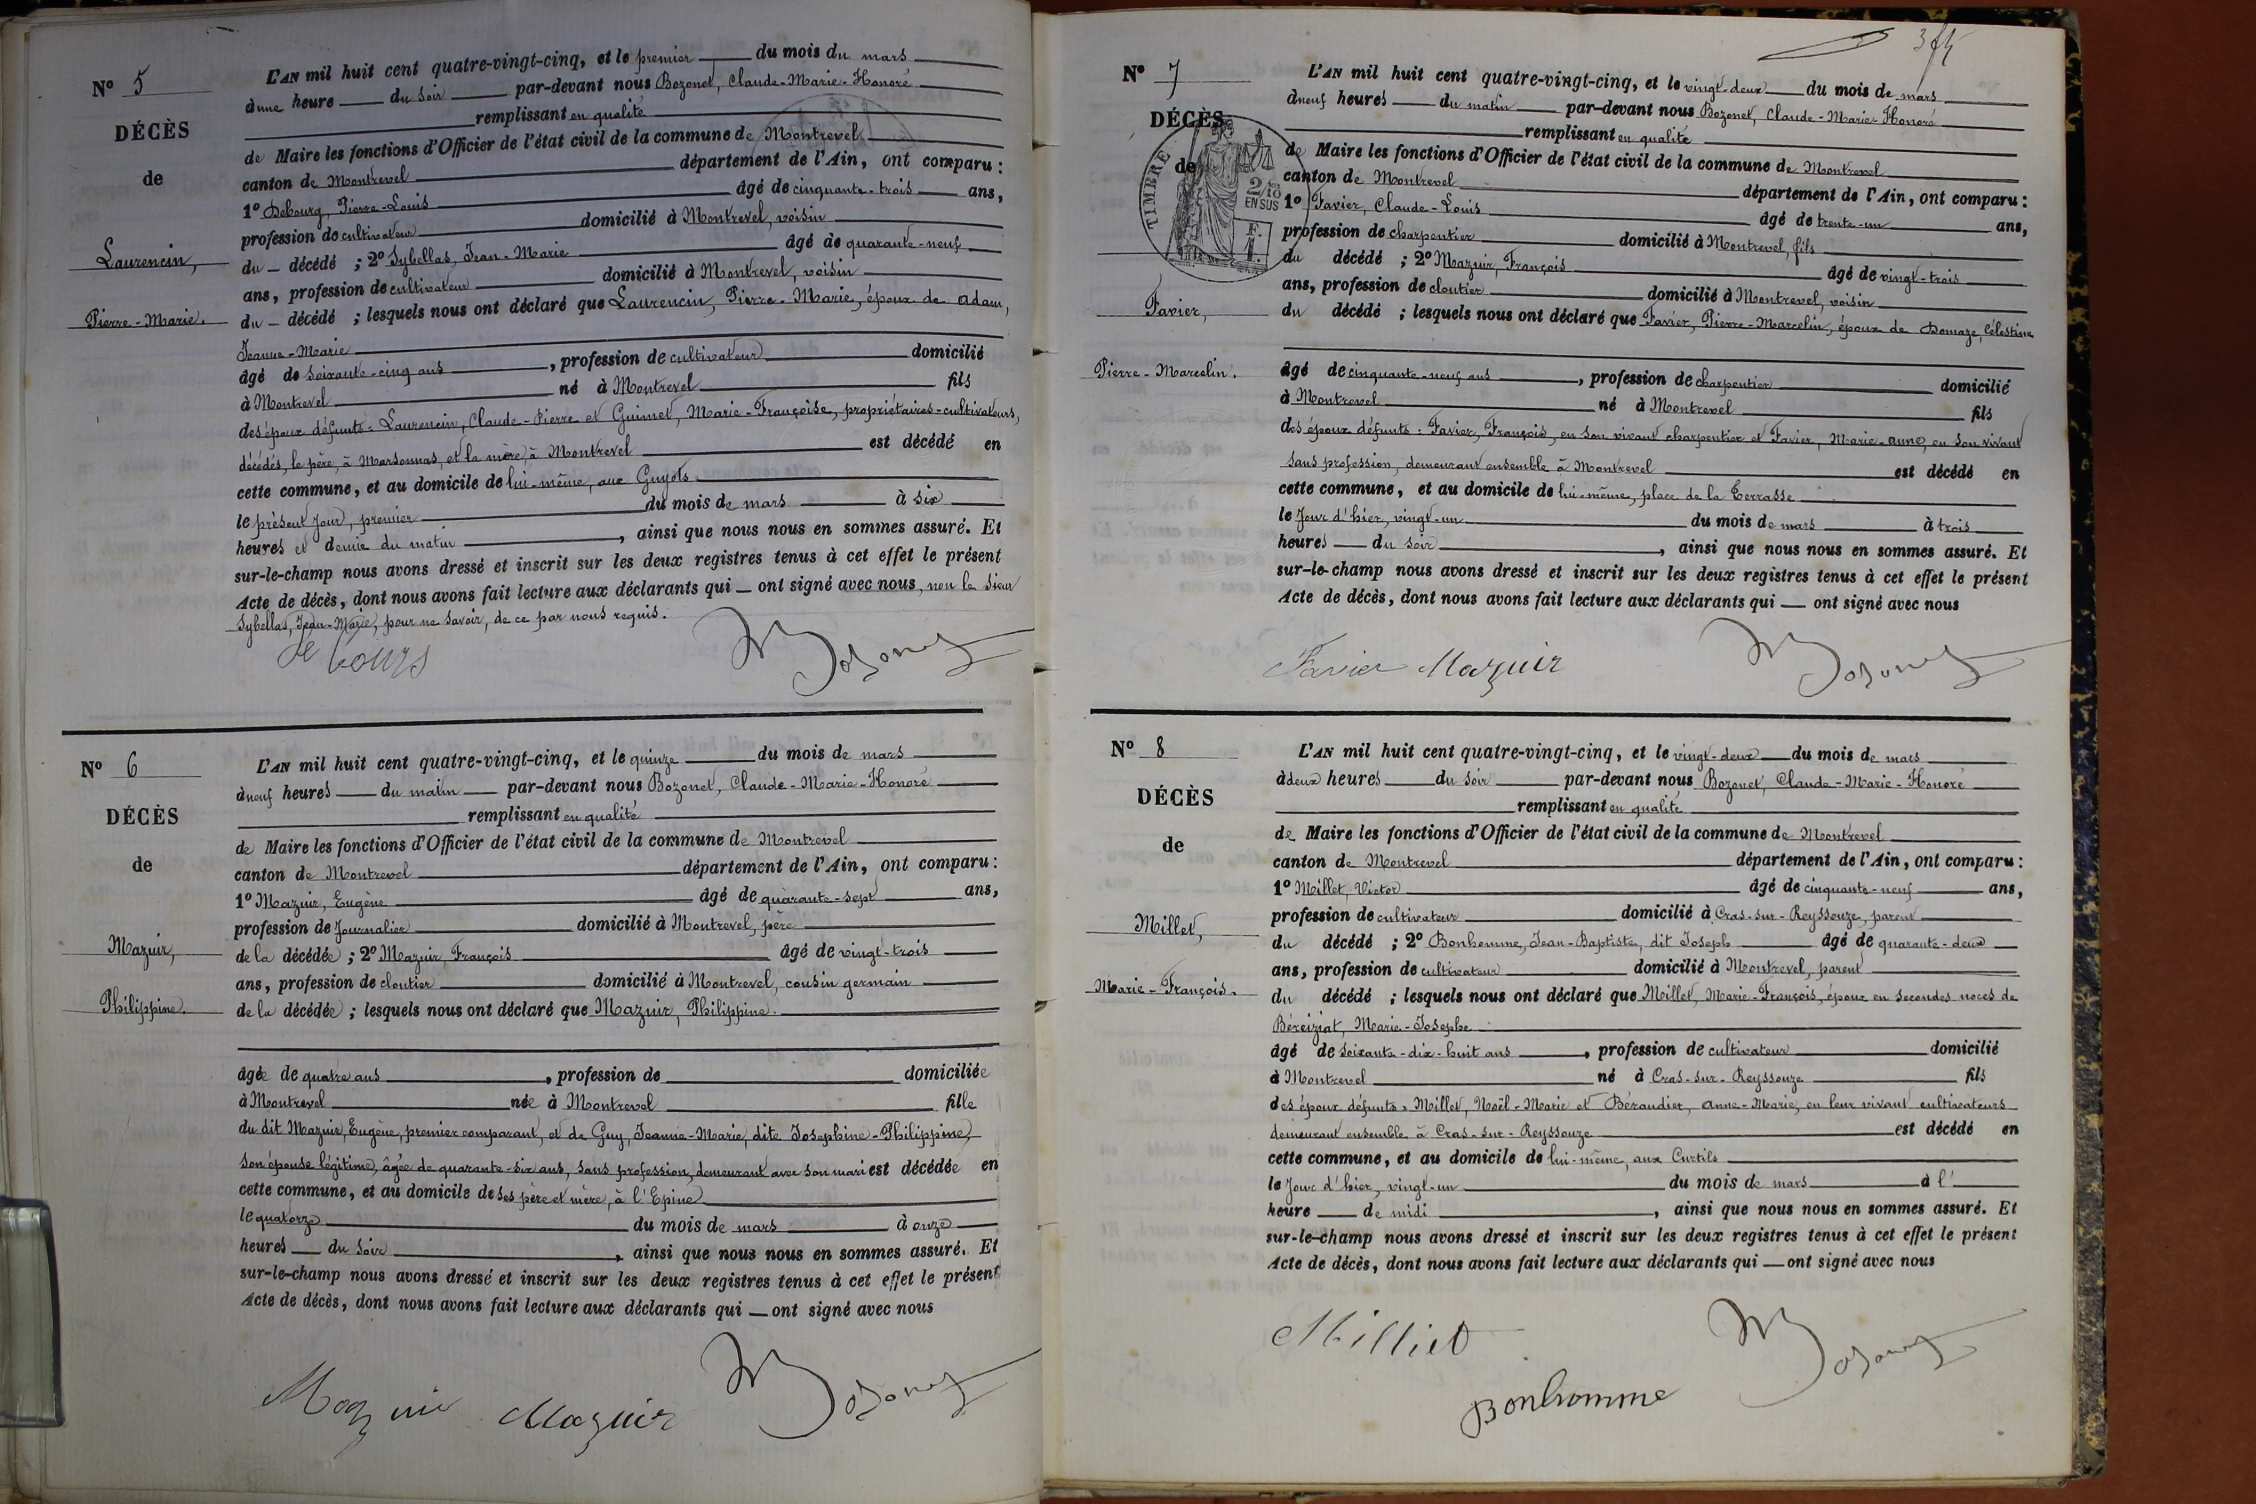 Nº 5
DÉCÈS
de
Laurencin,
Pierre-Marie.
L'AN mil huit cent quatre-vingt-cinq, et le premier du mois du mars
à une heure du soir par-devant nous Bozonet, Claude-Marie-Honoré
remplissant en qualité
de Maire les fonctions d'Officier de l'état civil de la commune de Montrevel
canton de Montrevel département de l'Ain, ont comparu :
1º Debourg, Pierre-Louis âgé de cinquante-trois ans,
profession de cultivateur domicilié à Montrevel, voisin
du décédé ; 2º Sybellas, Jean-Marie âgé de quarante-neuf
ans, profession de cultivateur domicilié à Montrevel, voisin
du décédé ; lesquels nous ont déclaré que Laurencin, Pierre-Marie, époux de Adam,
Jeanne-Marie
âgé de soixante-cinq ans, profession de cultivateur domicilié
à Montrevel né à Montrevel fils
des époux défunts: Laurencin, Claude-Pierre et Guimet, Marie-Françoise, propriétaires-cultivateurs,
décédés, le père, à Marsonnas, et la mère, à Montrevel est décédé en
cette commune, et au domicile de lui-même, aux Guyots
le présent jour, premier du mois de mars à six
heures et demie du matin, ainsi que nous nous en sommes assuré. Et
sur-le-champ nous avons dressé et inscrit sur les deux registres tenus à cet effet le présent
Acte de décès, dont nous avons fait lecture aux déclarants qui ont signé avec nous, non le sieur
Sybellas, Jean-Marie, pour ne savoir, de ce par nous requis.
de bourg Bozonet
Nº 6
DÉCÈS
de
Mazuir,
Philippine.
L'AN mil huit cent quatre-vingt-cinq, et le quinze du mois de mars
à neuf heures du matin par-devant nous Bozonet, Claude-Marie-Honoré
remplissant en qualité
de Maire les fonctions d'Officier de l'état civil de la commune de Montrevel
canton de Montrevel département de l'Ain, ont comparu :
1º Mazuir, Eugène âgé de quarante-sept ans,
profession de Journalier domicilié à Montrevel, père
de la décédée ; 2º Mazuir, François âgé de vingt-trois
ans, profession de cloutier domicilié à Montrevel, cousin germain
de la décédée ; lesquels nous ont déclaré que Mazuir, Philippine.
âgée de quatre ans, profession de domiciliée
à Montrevel née à Montrevel fille
du dit Mazuir, Eugène, premier comparant, et de Guy, Jeanne-Marie, dite Josephine-Philippine,
son épouse légitime, âgée de quarante-six ans, sans profession, demeurant avec son mari est décédée en
cette commune, et au domicile de ses père et mère, à l'Epine
le quatorze du mois de mars à onze
heures du soir, ainsi que nous nous en sommes assuré. Et
sur-le-champ nous avons dressé et inscrit sur les deux registres tenus à cet effet le présent
Acte de décès, dont nous avons fait lecture aux déclarants qui ont signé avec nous
Mazuir Mazuir Bozonet
Nº 7
DÉCÈS
de
TIMBRE
2/10 EN SUS
F. 1.
Favier,
Pierre-Marcelin.
L'AN mil huit cent quatre-vingt-cinq, et le vingt-deux du mois de mars
à neuf heures du matin par-devant nous Bozonet, Claude-Marie-Honoré
remplissant en qualité
de Maire les fonctions d'Officier de l'état civil de la commune de Montrevel
canton de Montrevel département de l'Ain, ont comparu :
1º Favier, Claude-Louis âgé de trente-un ans,
profession de charpentier domicilié à Montrevel, fils
du décédé ; 2º Mazuir, François âgé de vingt-trois
ans, profession de cloutier domicilié à Montrevel, voisin
du décédé ; lesquels nous ont déclaré que Favier, Pierre-Marcelin, époux de Domaze, Célestine
âgé de cinquante-neuf ans, profession de charpentier domicilié
à Montrevel né à Montrevel fils
des époux défunts : Favier, François, en son vivant charpentier et Favier, Marie-Anne, en son vivant
sans profession, demeurant ensemble à Montrevel est décédé en
cette commune, et au domicile de lui-même, place de la Terrasse
le Jour d'hier, vingt-un du mois de mars à trois
heures du soir, ainsi que nous nous en sommes assuré. Et
sur-le-champ nous avons dressé et inscrit sur les deux registres tenus à cet effet le présent
Acte de décès, dont nous avons fait lecture aux déclarants qui ont signé avec nous
Favier Mazuir Bozonet
Nº 8
DÉCÈS
de
Millet,
Marie-François.
L'AN mil huit cent quatre-vingt-cinq, et le vingt-deux du mois de mars
à deux heures du soir par-devant nous Bozonet, Claude-Marie-Honoré
remplissant en qualité
de Maire les fonctions d'Officier de l'état civil de la commune de Montrevel
canton de Montrevel département de l'Ain, ont comparu :
1º Millet, Victor âgé de cinquante-neuf ans,
profession de cultivateur domicilié à Cras-sur-Reyssouze, parent
du décédé ; 2º Bonhomme, Jean-Baptiste, dit Joseph âgé de quarante-deux
ans, profession de cultivateur domicilié à Montrevel, parent
du décédé ; lesquels nous ont déclaré que Millet, Marie-François, époux en secondes noces de
Béreiziat, Marie-Josephe
âgé de soixante-dix-huit ans, profession de cultivateur domicilié
à Montrevel né à Cras-sur-Reyssouze fils
des époux défunts, Millet, Noël-Marie et Béraudier, Anne-Marie, en leur vivant cultivateurs
demeurant ensemble à Cras-sur-Reyssouze est décédé en
cette commune, et au domicile de lui-même, aux Curtils
le Jour d'hier, vingt-un du mois de mars à l'
heure de midi, ainsi que nous nous en sommes assuré. Et
sur-le-champ nous avons dressé et inscrit sur les deux registres tenus à cet effet le présent
Acte de décès, dont nous avons fait lecture aux déclarants qui ont signé avec nous
Milliet Bozonet
Bonhomme